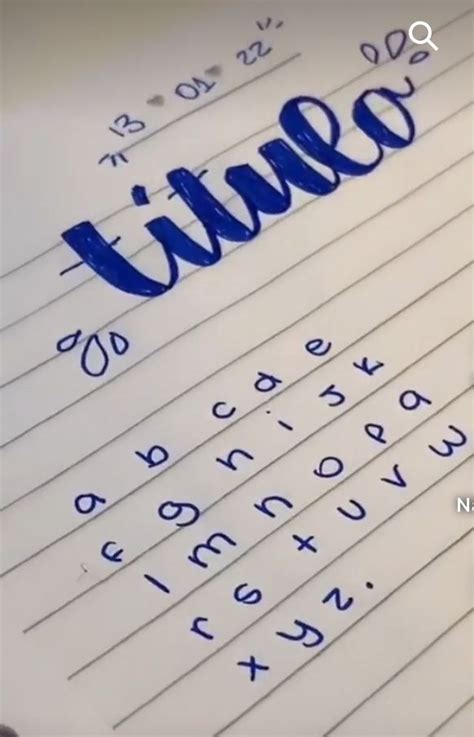 "13 ♥ 01 ♥ 22"
título
a b c d e
f g h i j k
l m n o p q
r s t u v w
x y z.